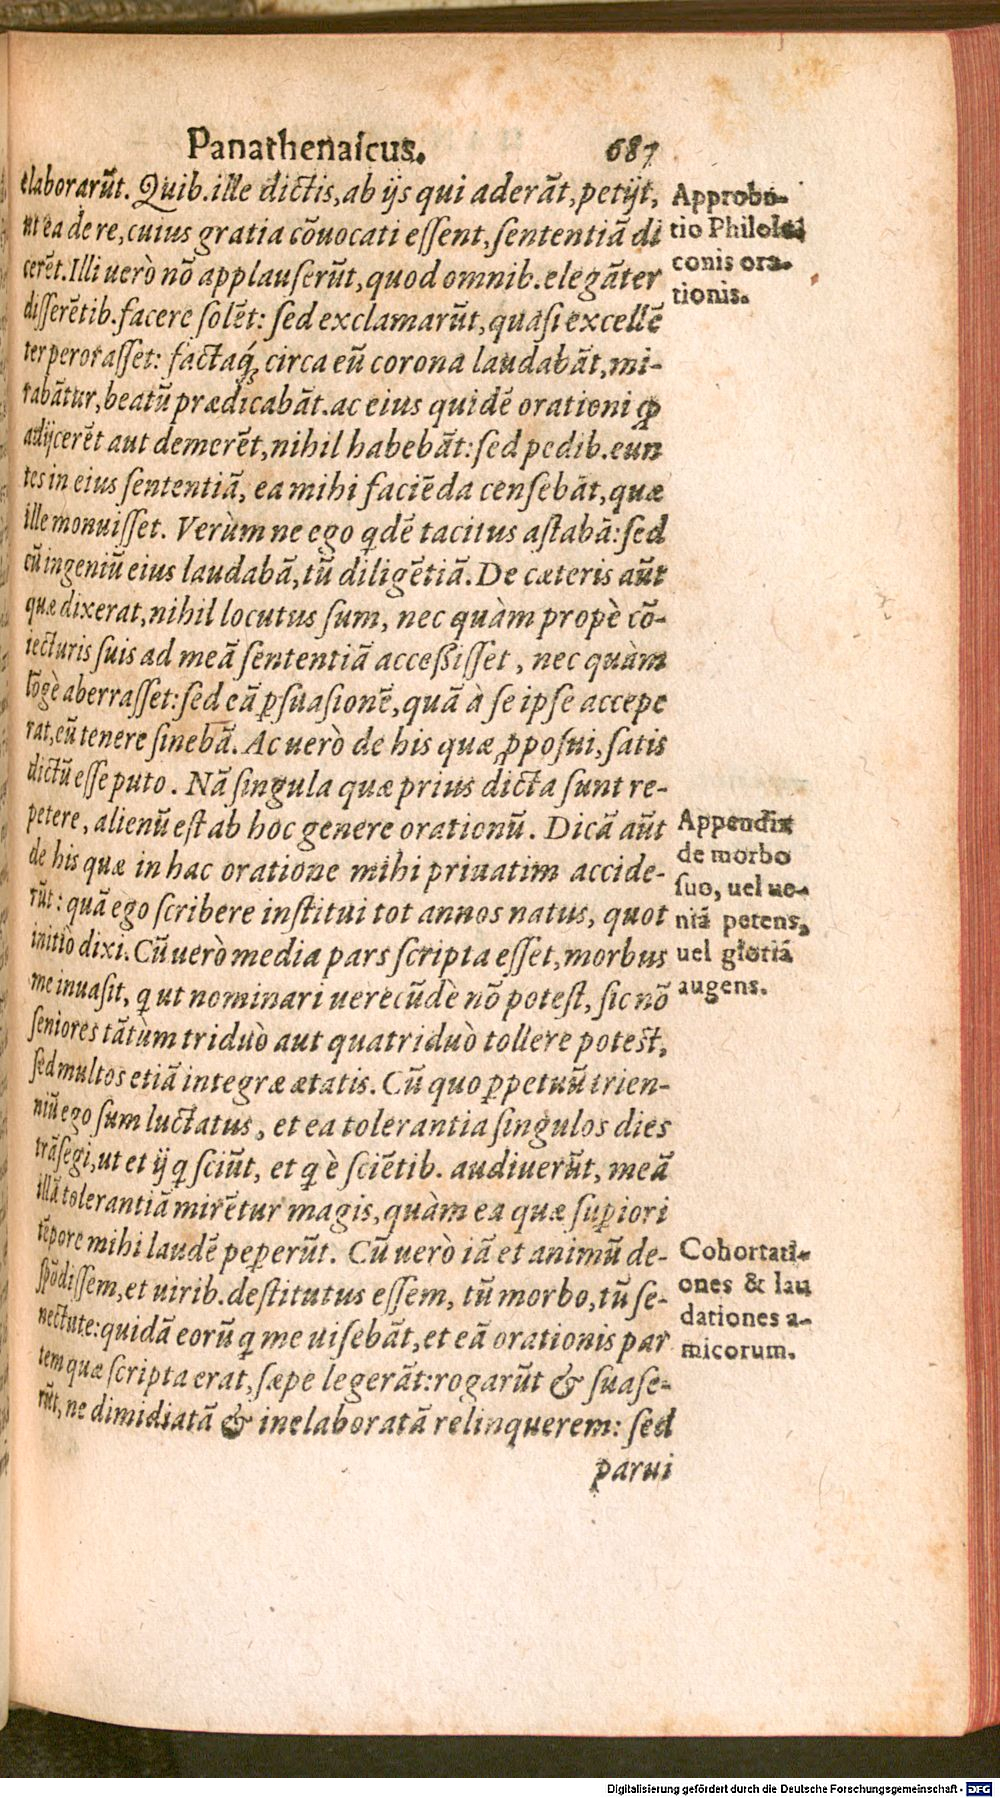 Panathenaicus. 687
elaborarūt. Quib. ille dictis, ab ijs qui aderāt, petijt,
ut ea de re, cuius gratia cōuocati essent, sententiā di
cerēt. Illi uerò nō applauserūt, quod omnib. elegāter
disserētib. facere solēt: sed exclamarūt, quasi excellē
ter perorasset: factaq́; circa eū corona laudabāt, mi-
rabātur, beatū prædicabāt. ac eius quidē orationi ꝙ
adijcerēt aut demerēt, nihil habebāt: sed pedib. eun
tes in eius sententiā, ea mihi faciēda censebāt, quæ
ille monuisset. Verùm ne ego qdē tacitus astabā: sed
cū ingeniū eius laudabā, tū diligētiā. De cæteris aūt
quæ dixerat, nihil locutus sum, nec quàm propè cō-
iecturis suis ad meā sententiā accessisset, nec quàm
lōgè aberrasset: sed eā ꝑsuasionē, quā à se ipse accepe
rat, eū tenere sinebā. Ac uerò de his quæ ꝓposui, satis
dictū esse puto. Nā singula quæ prius dicta sunt re-
petere, alienū est ab hoc genere orationū. Dicā aūt
de his quæ in hac oratione mihi priuatim accide-
rūt: quā ego scribere institui tot annos natus, quot
initio dixi. Cū uerò media pars scripta esset, morbus
me inuasit, q ut nominari uerecūdè nō potest, sic nō
seniores tātùm triduò aut quatriduò tollere potest,
sed multos etiā integræ ætatis. Cū quo ꝑpetuū trien-
niū ego sum luctatus, et ea tolerantia singulos dies
trāsegi, ut et ij q sciūt, et q è sciētib. audiuerūt, meā
illā tolerantiā mirētur magis, quàm ea quæ suꝑiori
tēpore mihi laudē peꝑerūt. Cū uerò iā et animū de-
spōdissem, et uirib. destitutus essem, tū morbo, tū se-
nectute: quidā eorū q me uisebāt, et eā orationis par
tem quæ scripta erat, sæpe legerāt: rogarūt & suase-
rūt, ne dimidiatā & inelaboratā relinquerem: sed
parui
Approba-
tio Philolai
conis ora-
tionis.
Appendix
de morbo
suo, uel ue-
niā petens,
uel gloriā
augens.
Cohortati-
ones & lau
dationes a-
micorum.
Digitalisierung gefördert durch die Deutsche Forschungsgemeinschaft - DFG